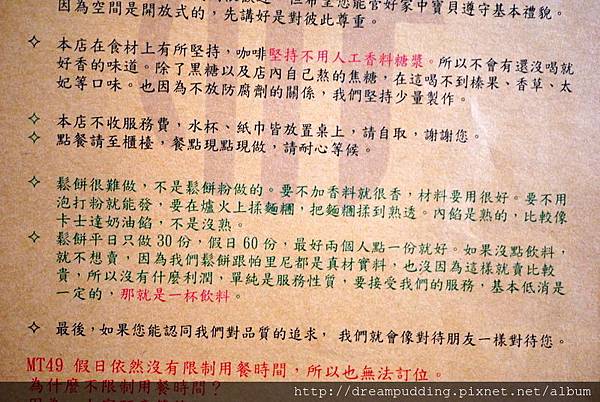 因為空間是開放式的，先講好是對彼此尊重。
本店在食材上有所堅持，咖啡堅持不用人工香料糖漿。所以不會有還沒喝就
好香的味道。除了黑糖以及店內自己熬的焦糖，在這喝不到榛果、香草、太
妃等口味。也因為不放防腐劑的關係，我們堅持少量製作。
本店不收服務費，水杯、紙巾皆放置桌上，請自取，謝謝您。
點餐請至櫃檯，餐點現點現做，請耐心等候。
鬆餅很難做，不是鬆餅粉做的。要不加香料就很香，材料要用很好。要不用
泡打粉就能發，要在爐火上揉麵糰，把麵糰揉到熟透。內餡是熟的，比較像
卡士達奶油餡，不是沒熟。
鬆餅平日只做30份，假日60份，最好兩個人點一份就好。如果沒點飲料，
就不想賣，因為我們鬆餅跟帕里尼都是真材實料，也沒因為這樣就賣比較
貴，所以沒有什麼利潤，單純是服務性質，要接受我們的服務，基本低消是
一定的，那就是一杯飲料。
最後，如果您能認同我們對品質的追求， 我們就會像對待朋友一樣對待您。
MT49 假日依然沒有限制用餐時間，所以也無法訂位。
為什麼不限制用餐時間？
http://dreampudding.pixnet.net/album